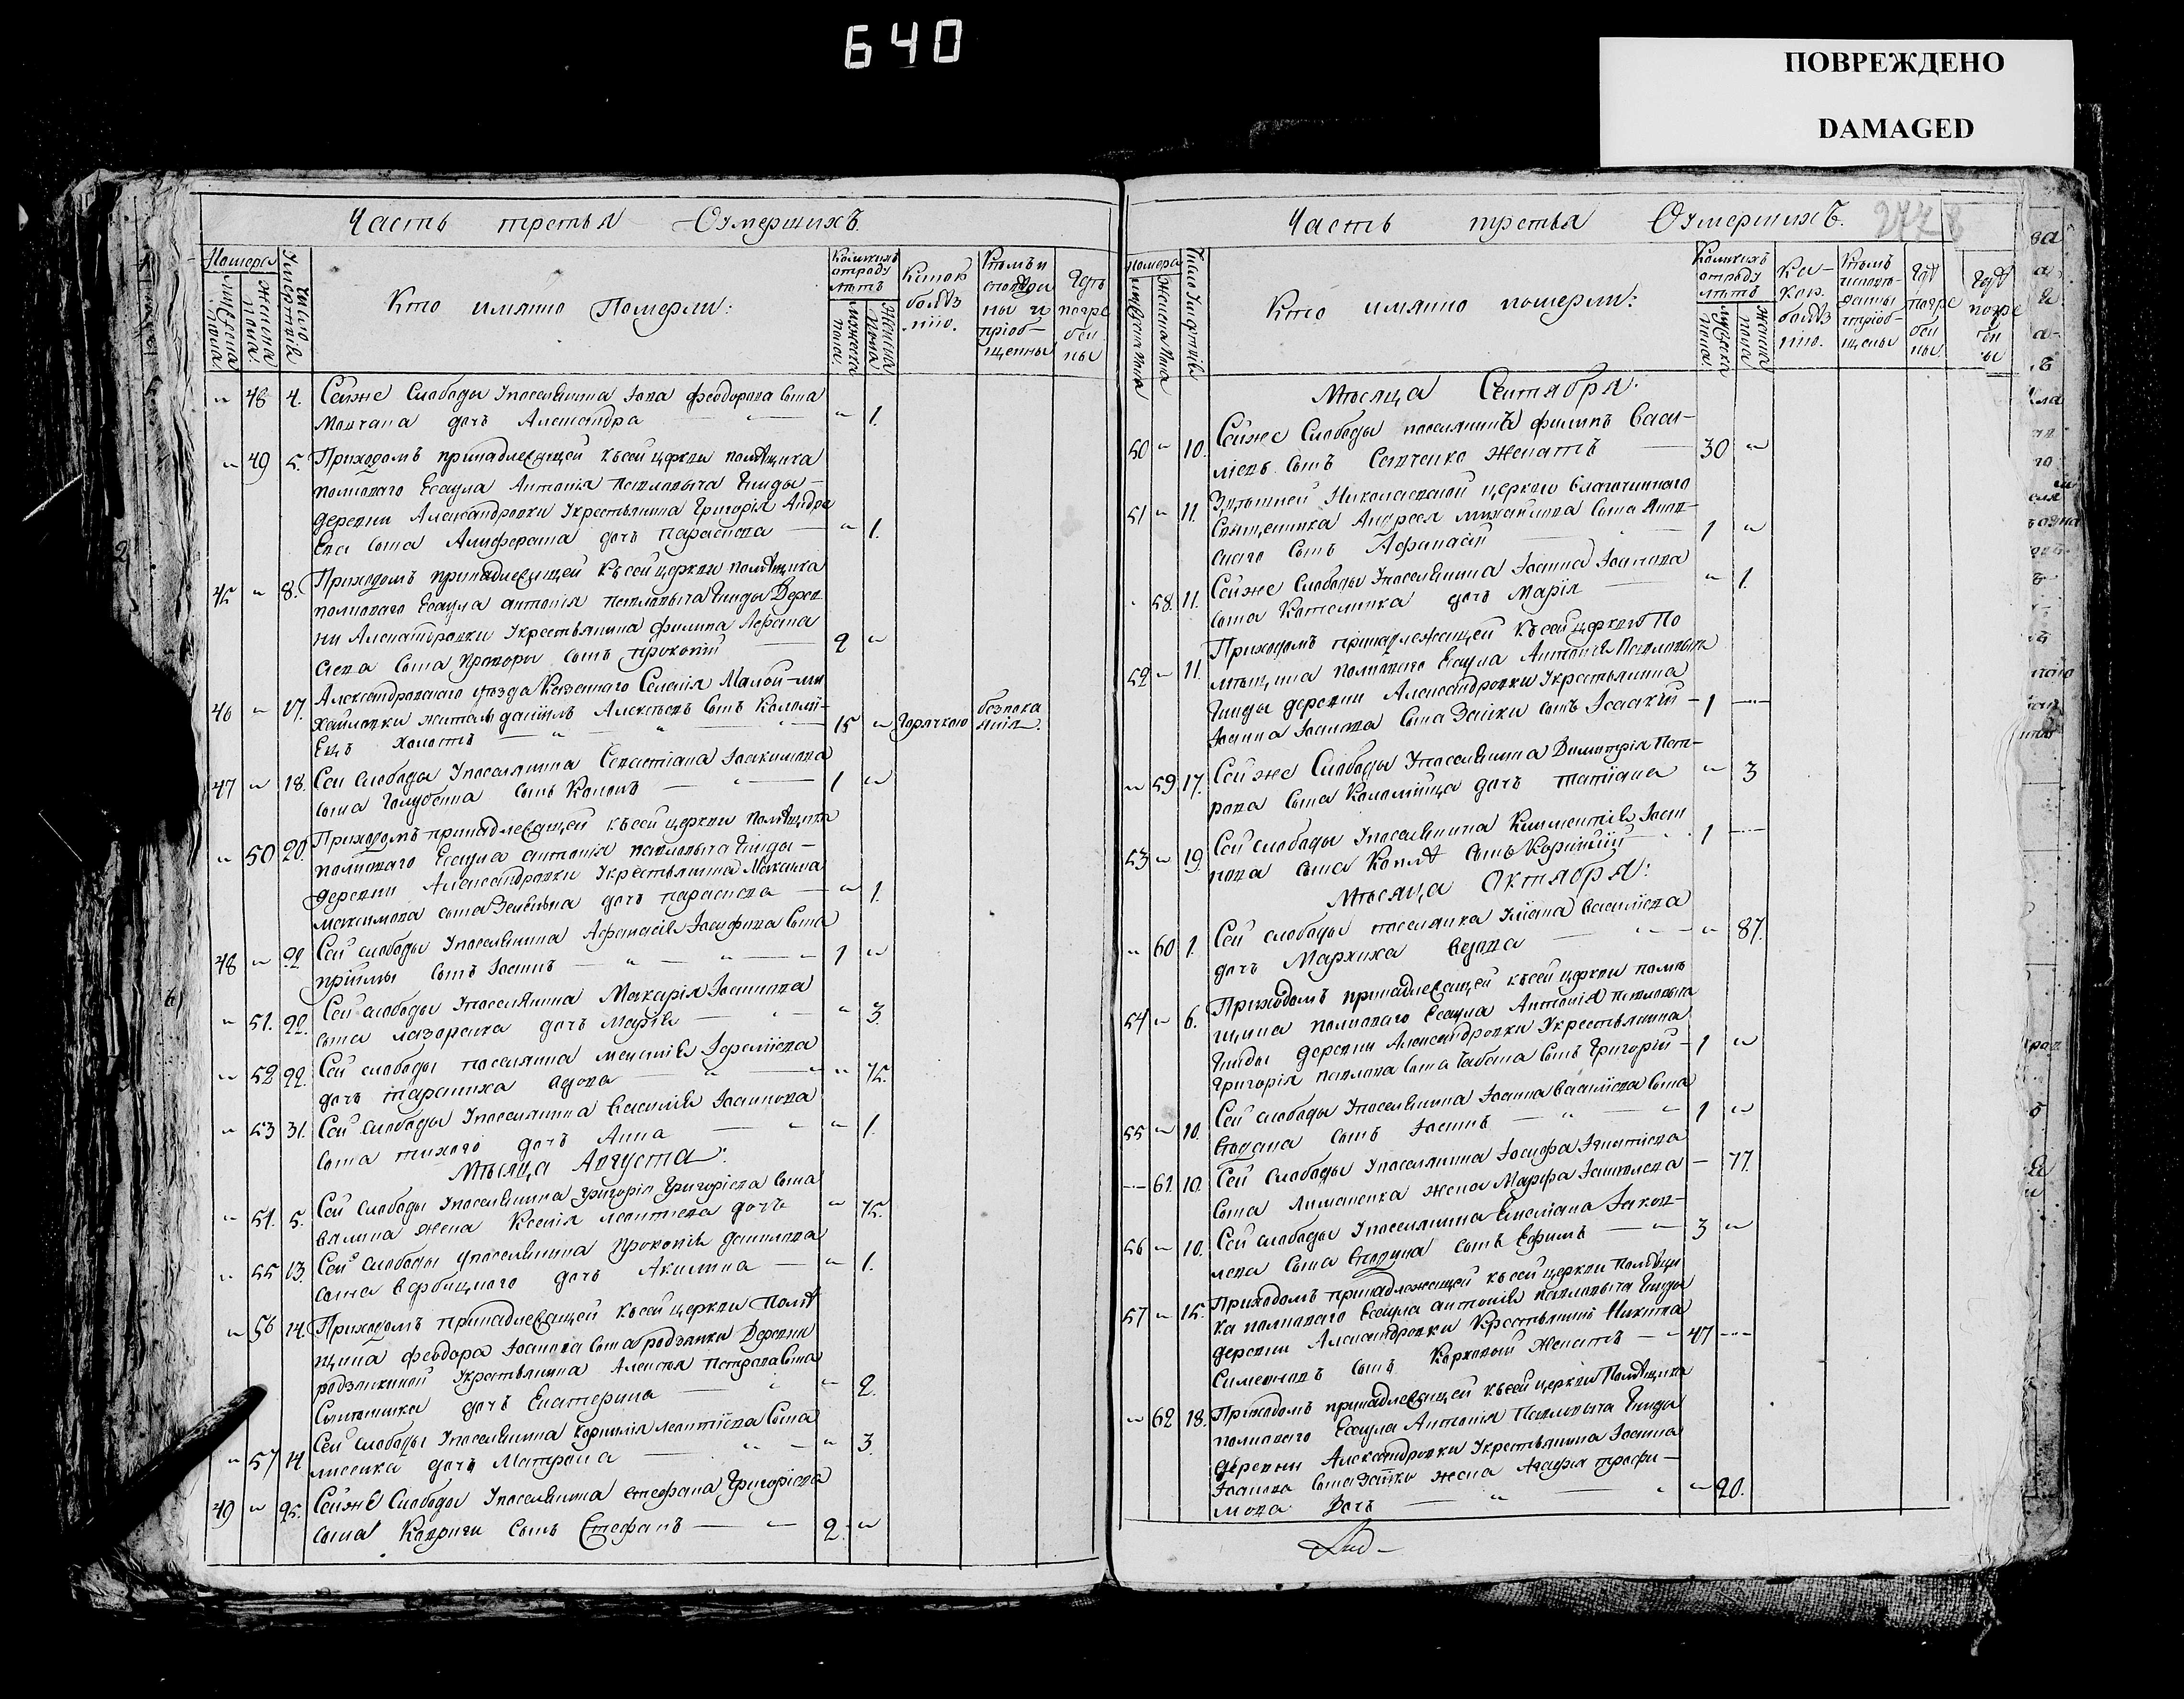 640
ПОВРЕЖДЕНО
DAMAGED
Часть третья О умершихъ.
Номера
Число умертвія
Кто имянно Померли:
Коликихъ отроду лѣтъ
мужеска пола
женска пола
Какою болѣзнію.
Кѣмъ исповѣданы и пріобщенны
Гдѣ погребены
" 48 4. Сейже Слободы Упоселянина Іова феодорова сына
Мовчана дочь Александра " 1.
" 49 5. Приходомъ принадлежащей къ сей церкви помѣщика
полковаго Есаула Антонія Павловича Гниды
деревни Александровки Укрестьянина Григорія Андре
ева сына дочь Параскева " 1.
45 " 8. Приходомъ принадлежащей къ сей церкви помѣщика
полковаго Есаула антонія павловича Гниды Дерев
ни Александровки Укрестьянина филипа
сына сынъ прокопій 2 "
46 " 17. Александровскаго уѣзда Казеннаго Селенія Малой-ми
хайловки житель даніилъ Алексѣевъ сынъ Коломі-
ецъ холостъ 15 " Горячкою безпокаянія.
47 " 18. Сей слободы Упоселянина Севастіана Іоакимова
сына Голубенка сынъ Кононъ 1 "
" 50 20. Приходомъ принадлежащей къ сей церкви помѣщика
полковаго Есаула антонія павловича Гниды
деревни Александровки Укрестьянина Максима
максимова сына дочь параскева " 1.
48 " 22. Сей слободы Упоселянина Афанасія Іосифова сына
пріймы сынъ Іоаннъ 1 "
" 51. 22. Сей слободы Упоселянина Макарія Іоаннова
сына лазаренка дочь Марія " 3.
" 52 22. Сей слободы поселянина
дочь вдова " 75.
" 53 31. Сей слободы Упоселянина Василія Іоаннова
сына тихого дочь Анна " 1.
Мѣсяца Августа:
" 54. 5. Сей слободы Упоселянина григорія григоріева сына
жена Ксенія леонтіева дочь " 75.
" 55 13. Сей слободы упоселянина Прокопія даниилова
сына вербицкого дочь Акилина " 1.
" 56 14. Приходомъ принадлежащей къ сей церкви помѣ
щика феодора Іоанова сына родзянки Деревни
родзянкиной Укрестьянина Алексѣя петрова сына
дочь Екатерина " 2.
" 57 14. Сей слободы Упоселянина корнилія леонтіева сына
лисенка дочь Матрона " 3.
49 " 25. Сейже Слободы Упоселянина стефана Григоріева
сына Ковриги сынъ Стефанъ 2. "
Часть третья О умершихъ. 277 8
Номера
Число умертвія
Кто имянно померли:
Коликихъ отроду лѣтъ
Какою болѣзнію.
Кѣмъ исповѣданны и пріобщены
Гдѣ погребены
Мѣсяца Сентября:
50 " 10. Сейже Слободы поселянинъ филипъ Васи-
ліевъ сынъ Сенченко женатъ 30 "
51 " 11. Здѣшней Николаевской церкви благочиннаго
Священника Андрея михаилова сына
сынъ Афанасій 1 "
" 58. 11. Сейже Слободы Упоселянина Іоанна Іоаннова
сына Котелника дочь Марія " 1.
52 " 11. Приходомъ принадлежащей къ сей церкви По
мѣщика полковаго Есаула Антонія Павловича
Гниды деревни Александровки Укрестьянина
Іоанна Іоанова сына Зайки сынъ Ісаакій 1 "
" 59 17. Сейже Слободы Упоселянина Димитрія Пет-
рова сына Коломійца дочь татіана " 3
53 " 19. Сей слободы Упоселянина Климентія Іоан
нова сына сынъ Корнилій 1 "
Мѣсяца Октября:
" 60 1. Сей слободы поселянка Василіева
дочь вдова " 87.
54 " 6. Приходомъ принадлежащей къ сей церкви помѣ
щика полковаго Есаула Антонія павловича
Гниды деревни Александровки Укрестьянина
Григорія павлова сына Чабана сынъ Григорій 1 "
55 " 10. Сей слободы Упоселянина Іоанна Василіева сына
сынъ Іоаннъ 1 "
" 61. 10. Сей слободы Упоселянина Іосифа Игнатіева
сына Лиманенка жена Марфа " 77.
56 " 10. Сей слободы Упоселянина Емеліана Іаков-
лева сына сынъ Ефимъ 3 "
57 " 15. Приходомъ принадлежащей къ сей церкви помѣщи
ка полковаго Есаула антонія павловича Гниды
деревни Александровки Крестьянинъ Никита
Симеоновъ сынъ женатъ 47 "
" 62 18. Приходомъ принадлежащей къ сей церкви Помѣщика
полковаго Есаула Антонія Павловича Гниды
деревни Александровки Укрестьянина Іоанна
Іоанова сына Зайки жена Агафія трофи-
мова дочь " 20.